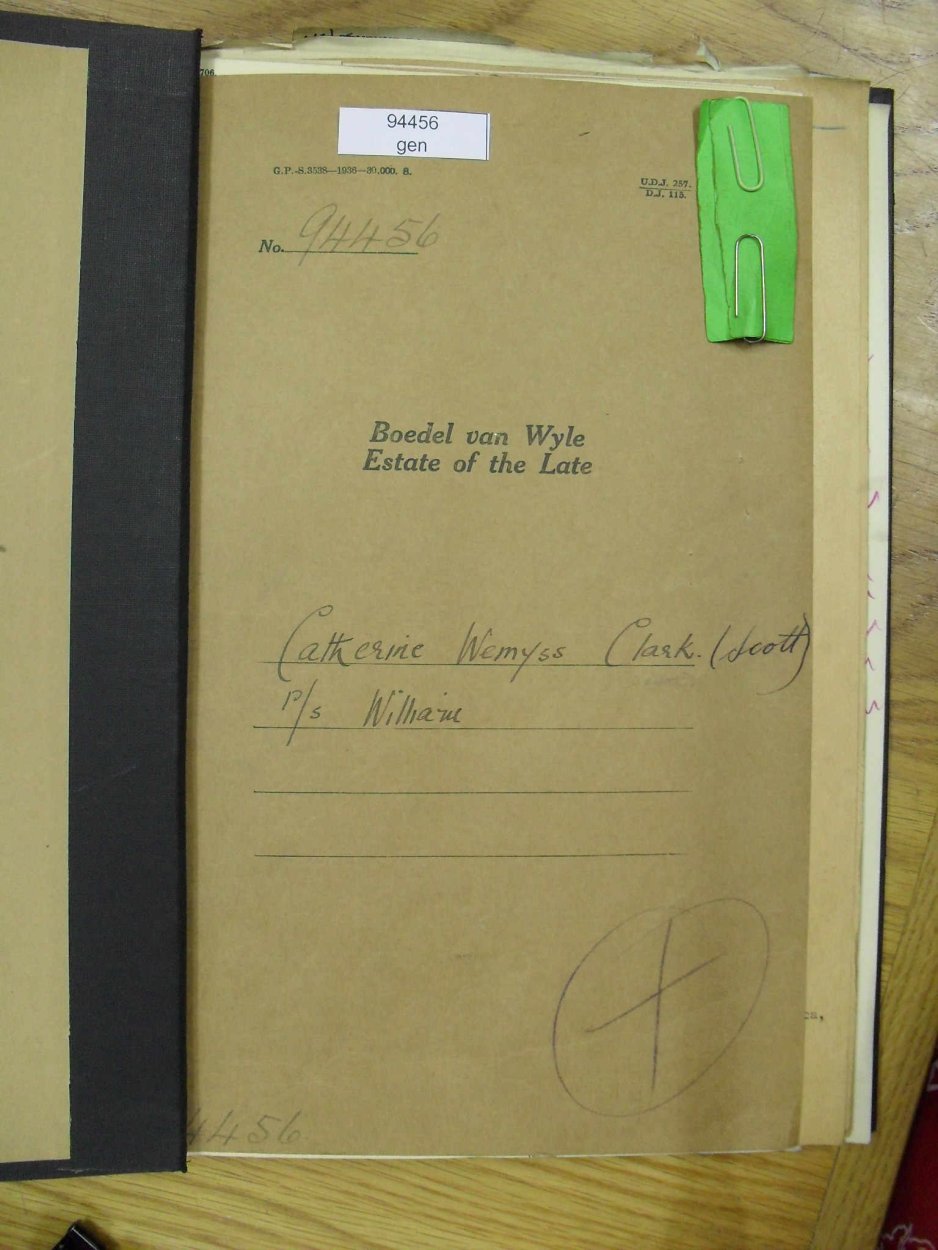 706.
94456
gen
G.P.-S.3538—1936—30.000. S.
U.D.J. 257.
D.J. 115.
No. 94456
Boedel van Wyle
Estate of the Late
Catherine Wemyss Clark. (Scott)
P/s William
4456.